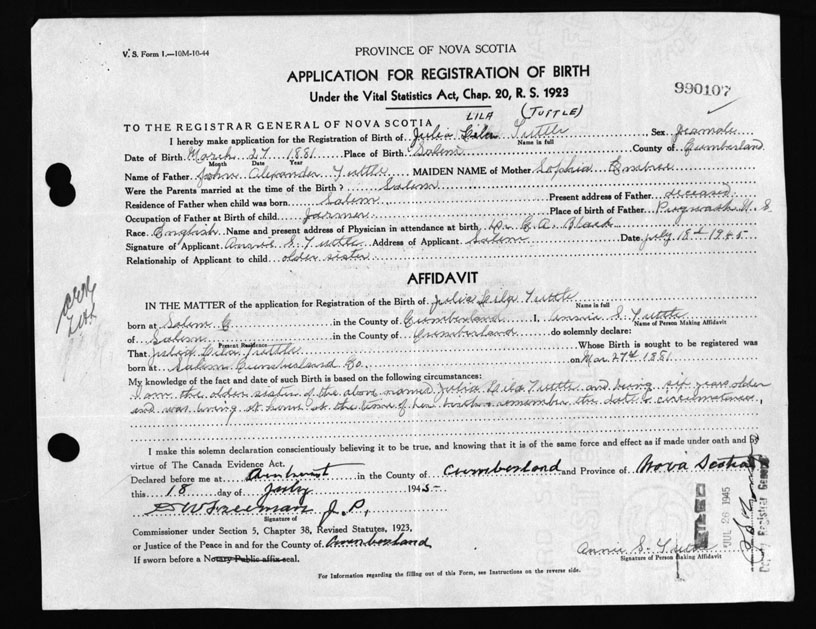 V. S. Form 1.—10M-10-44
PROVINCE OF NOVA SCOTIA
APPLICATION FOR REGISTRATION OF BIRTH
Under the Vital Statistics Act, Chap. 20, R. S. 1923
990107
LILA (TUTTLE)
TO THE REGISTRAR GENERAL OF NOVA SCOTIA
I hereby make application for the Registration of Birth of Julia Lila Tuttle Sex Female
Name in full
Date of Birth March 27 1881 Place of Birth Salem County of Cumberland
Month Date Year
Name of Father John Alexander Tuttle MAIDEN NAME of Mother Sophia Embree
Were the Parents married at the time of the Birth? Salem
Residence of Father when child was born Salem Present address of Father deceased
Occupation of Father at Birth of child farmer Place of birth of Father Pugwash N. S.
Race English Name and present address of Physician in attendance at birth Dr. C. A. Black
Signature of Applicant Annie S. Tuttle Address of Applicant Salem Date July 18th 1945
Relationship of Applicant to child older sister
AFFIDAVIT
IN THE MATTER of the application for Registration of the Birth of Julia Lila Tuttle
Name in full
born at Salem in the County of Cumberland I, Annie S. Tuttle
Name of Person Making Affidavit
of Salem in the County of Cumberland do solemnly declare:
Present Residence
That Julia Lila Tuttle Whose Birth is sought to be registered was
born at Salem Cumberland Co. on Mar. 27th 1881
My knowledge of the fact and date of such Birth is based on the following circumstances:
I am the older sister of the above named Julia Lila Tuttle and being six years older
and was living at home at the time of her birth & remember the date & circumstances.
I make this solemn declaration conscientiously believing it to be true, and knowing that it is of the same force and effect as if made under oath and by
virtue of The Canada Evidence Act.
Declared before me at Amherst in the County of Cumberland and Province of Nova Scotia
this 18 day of July 1945
Freeman J.P.
Signature of
Commissioner under Section 5, Chapter 38, Revised Statutes, 1923,
or Justice of the Peace in and for the County of Cumberland
If sworn before a Notary Public affix seal.
Annie S. Tuttle
Signature of Person Making Affidavit
JUL 26 1945
Deputy Registrar General
For Information regarding the filling out of this Form, see Instructions on the reverse side.